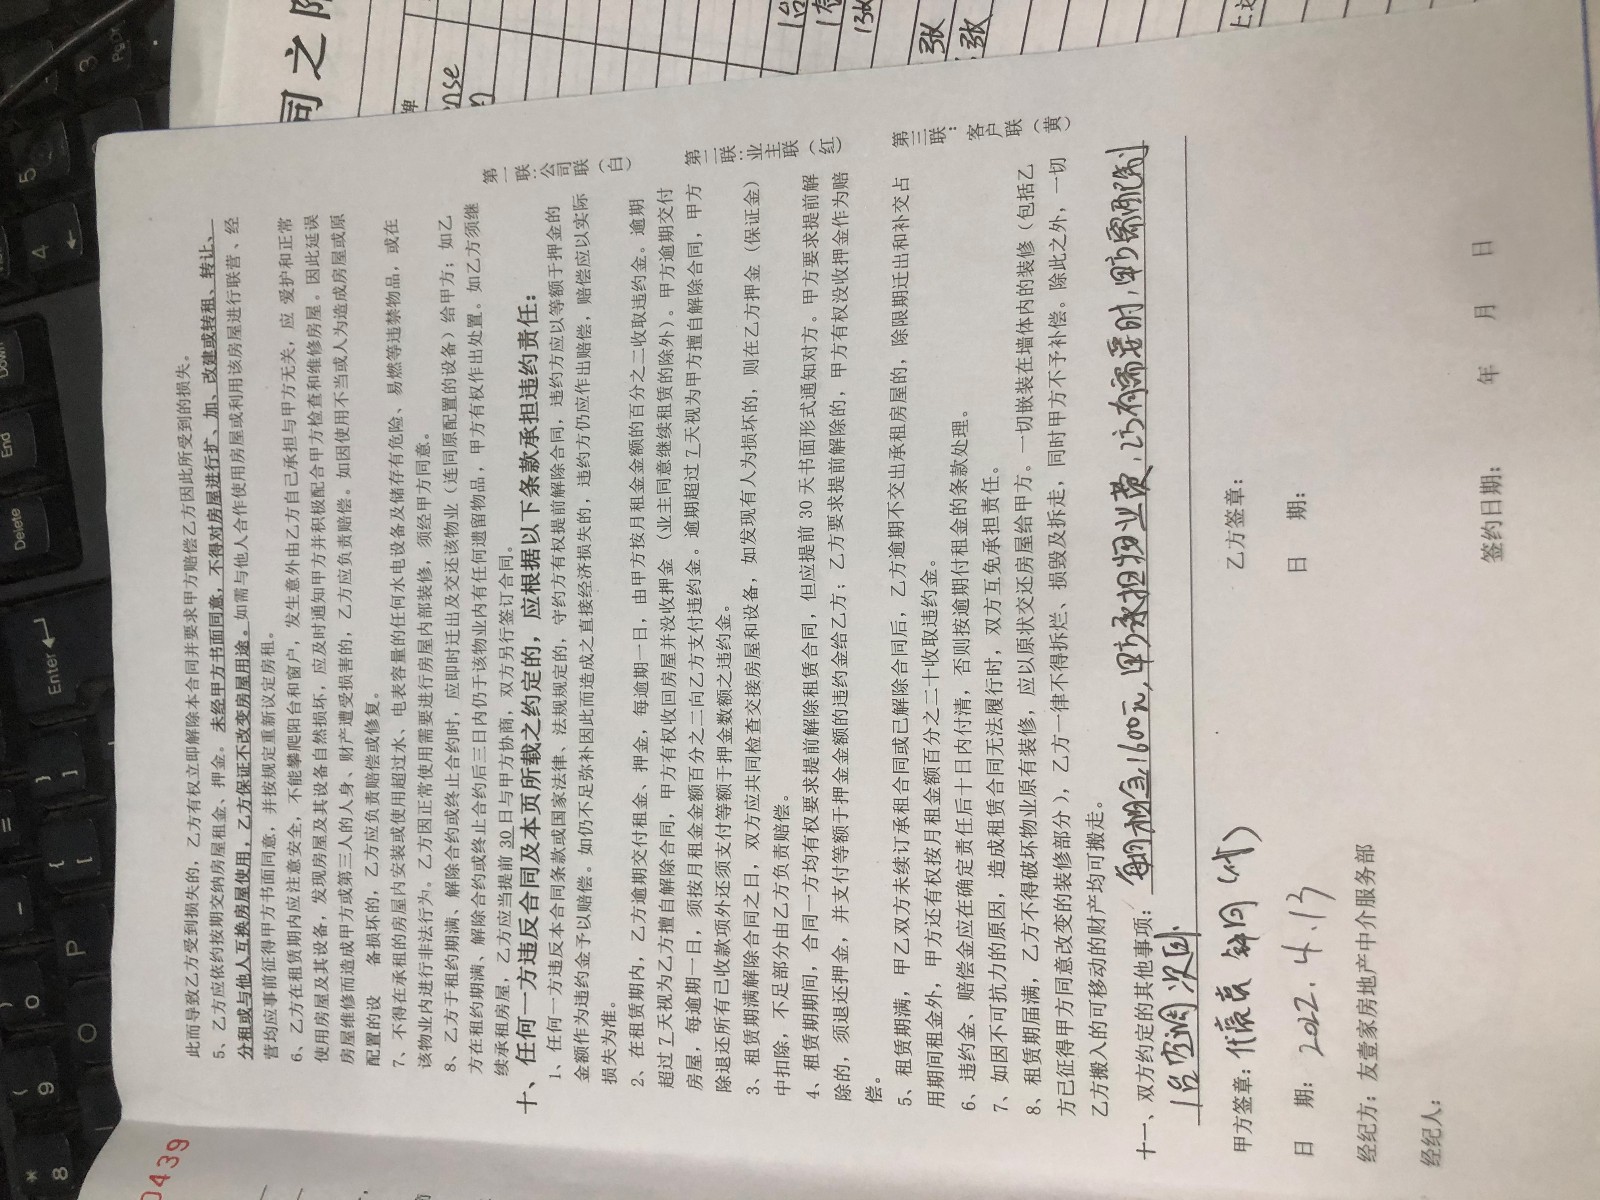 此而导致乙方受到损失的，乙方有权立即解除本合同并要求甲方赔偿乙方因此所受到的损失。
5、乙方应依约按期交纳房屋租金、押金。未经甲方书面同意，不得对房屋进行扩、加、改建或转租、转让、
分租或与他人互换房屋使用，乙方保证不改变房屋用途。如需与他人合作使用房屋或利用该房屋进行联营、经
营均应事前征得甲方书面同意，并按规定重新议定房租。
6、乙方在租赁期内应注意安全，不能攀爬阳台和窗户，发生意外由乙方自己承担与甲方无关，应 爱护和正常
使用房屋及其设备，发现房屋及其设备自然损坏，应及时通知甲方并积极配合甲方检查和维修房屋。因此延误
房屋维修而造成甲方或第三人的人身、财产遭受损害的，乙方应负责赔偿。如因使用不当或人为造成房屋或原
配置的设 备损坏的，乙方应负责赔偿或修复。
7、不得在承租的房屋内安装或使用超过水、电表容量的任何水电设备及储存有危险、易燃等违禁物品，或在
该物业内进行非法行为。乙方因正常使用需要进行房屋内部装修，须经甲方同意。
8、乙方于租约期满、解除合约或终止合约时，应即时迁出及交还该物业（连同原配置的设备）给甲方；如乙
方在租约期满、解除合约或终止合约后三日内仍于该物业内有任何遗留物品，甲方有权作出处置。如乙方须继
续承租房屋，乙方应当提前 30 日与甲方协商，双方另行签订合同。
十、任何一方违反合同及本页所载之约定的，应根据以下条款承担违约责任：
1、任何一方违反本合同条款或国家法律、法规规定的，守约方有权提前解除合同，违约方应以等额于押金的
金额作为违约金予以赔偿。如仍不足弥补因此而造成之直接经济损失的，违约方仍应作出赔偿，赔偿应以实际
损失为准。
2、在租赁期内，乙方逾期交付租金、押金，每逾期一日，由甲方按月租金金额的百分之二收取违约金。逾期
超过 7 天视为乙方擅自解除合同，甲方有权收回房屋并没收押金（业主同意继续租赁的除外）。甲方逾期交付
房屋，每逾期一日，须按月租金金额百分之二向乙方支付违约金。逾期超过 7 天视为甲方擅自解除合同，甲方
除退还所有已收款项外还须支付等额于押金数额之违约金。
3、租赁期满解除合同之日，双方应共同检查交接房屋和设备，如发现有人为损坏的，则在乙方押金（保证金）
中扣除，不足部分由乙方负责赔偿。
4、租赁期期间，合同一方均有权要求提前解除租赁合同，但应提前 30 天书面形式通知对方。甲方要求提前解
除的，须退还押金，并支付等额于押金金额的违约金给乙方；乙方要求提前解除的，甲方有权没收押金作为赔
偿。
5、租赁期满，甲乙双方未续订承租合同或已解除合同后，乙方逾期不交出承租房屋的，除限期迁出和补交占
用期间租金外，甲方还有权按月租金额百分之二十收取违约金。
6、违约金、赔偿金应在确定责任后十日内付清，否则按逾期付租金的条款处理。
7、如因不可抗力的原因，造成租赁合同无法履行时，双方互免承担责任。
8、租赁期届满，乙方不得破坏物业原有装修，应以原状交还房屋给甲方。一切嵌装在墙体内的装修（包括乙
方已征得甲方同意改变的装修部分），乙方一律不得拆烂、损毁及拆走，同时甲方不予补偿。除此之外，一切
乙方搬入的可移动的财产均可搬走。
十一、双方约定的其他事项：每月租金1600元，甲方承担物业费，乙方有需要时，甲方需配制
1台空调 次卧
甲方签章： （代）
乙方签章：
日 期：2022.4.13
日 期：
经纪方：友壹家房地产中介服务部
经纪人：
签约日期： 年 月 日
第一联：公司联（白）
第二联：业主联（红）
第三联：客户联（黄）
同之附
0439
1台
13张
张
张
Delete
End
Down
PgDn
Enter
3
4
5
P
O
{ [
} ]
_ -
=
) 0
( 9
* 8